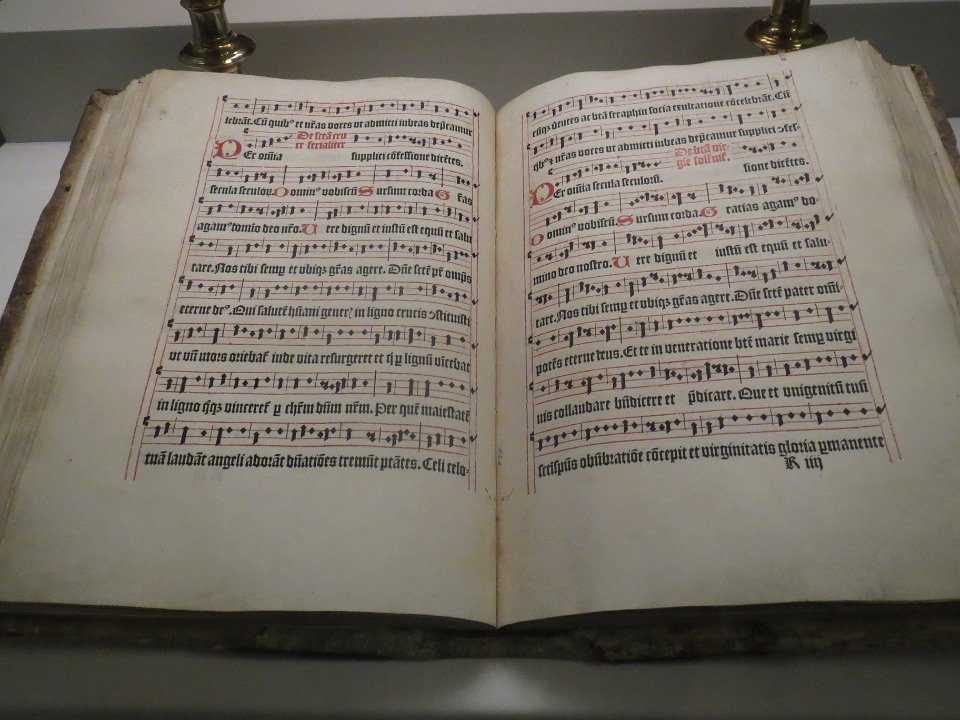 lebrāt. Cū quibꝰ et nr̄as voces vt admitti iubeas dep̄camur
De sctā cru
ce ferialiter
PEr om̄ia supplici cōfessione dicētes.
secula seculoꝝ. Dominꝰ vobiscū Sursum corda Gr̄as
agamꝰ domīo deo nr̄o. Uere dignū et iustū est equū et salu
tare. Nos tibi semꝑ et vbiqꝫ gr̄as agere. Dn̄e sctē pr̄ omp̄s
eterne deꝰ. Qui salutē hūani generꝭ in ligno crucis ↄstituisti
vt vn̄ mors oriebat inde vita resurgeret et q̄ ꝑ lignū vīcebat
in ligno qꝫ vinceret ꝑ chr̄m dūm nr̄m. Per quē maiestatē
tuā laudāt angeli adorāt dn̄atiōes tremūt ptātes. Celi celo-
tūqꝫ vtutes ac btā seraphin socia exultatione cōcelebrāt. Cū
qibꝰ et nr̄as voces vt admitti iubeas dep̄camur supplici ↄfes-
De btā vir-
gīe solēnit̄.
PEr om̄ia secula seculorū. sione dicētes.
Dominꝰ vobiscū. Sursum corda. Gratias agamꝰ do-
mino deo nostro. Uere dignū et iustū est equū et salu-
tare. Nos tibi semꝑ et vbiqꝫ gr̄as agere. Dn̄e sctē pater om̄i-
potēs eterne deus. Et te in veneratione btē marie semꝑ virgi
nis collaudare bn̄dicere et p̄dicare. Que et vnigenitū tuū
sctispūs obūbratiōe cōcepit et virginitatis gloria ꝑmanente
R iiij